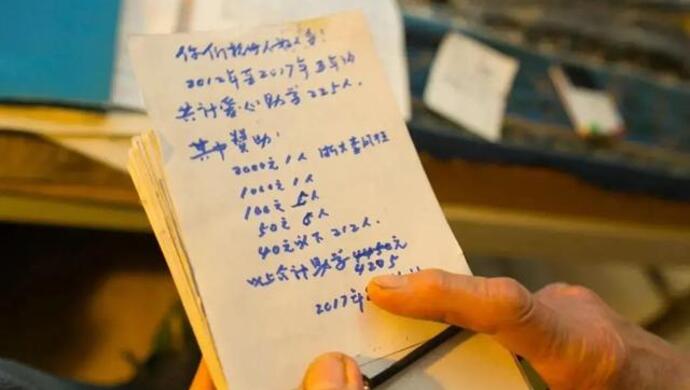 你们人！
2012年至2017年五年
共计爱心助学225人.
其中赞助:
2000元1人 浙大
1000元1人
100元 人
50元 人
40元以下212人.
以上合计助学4450元
4205
2017年